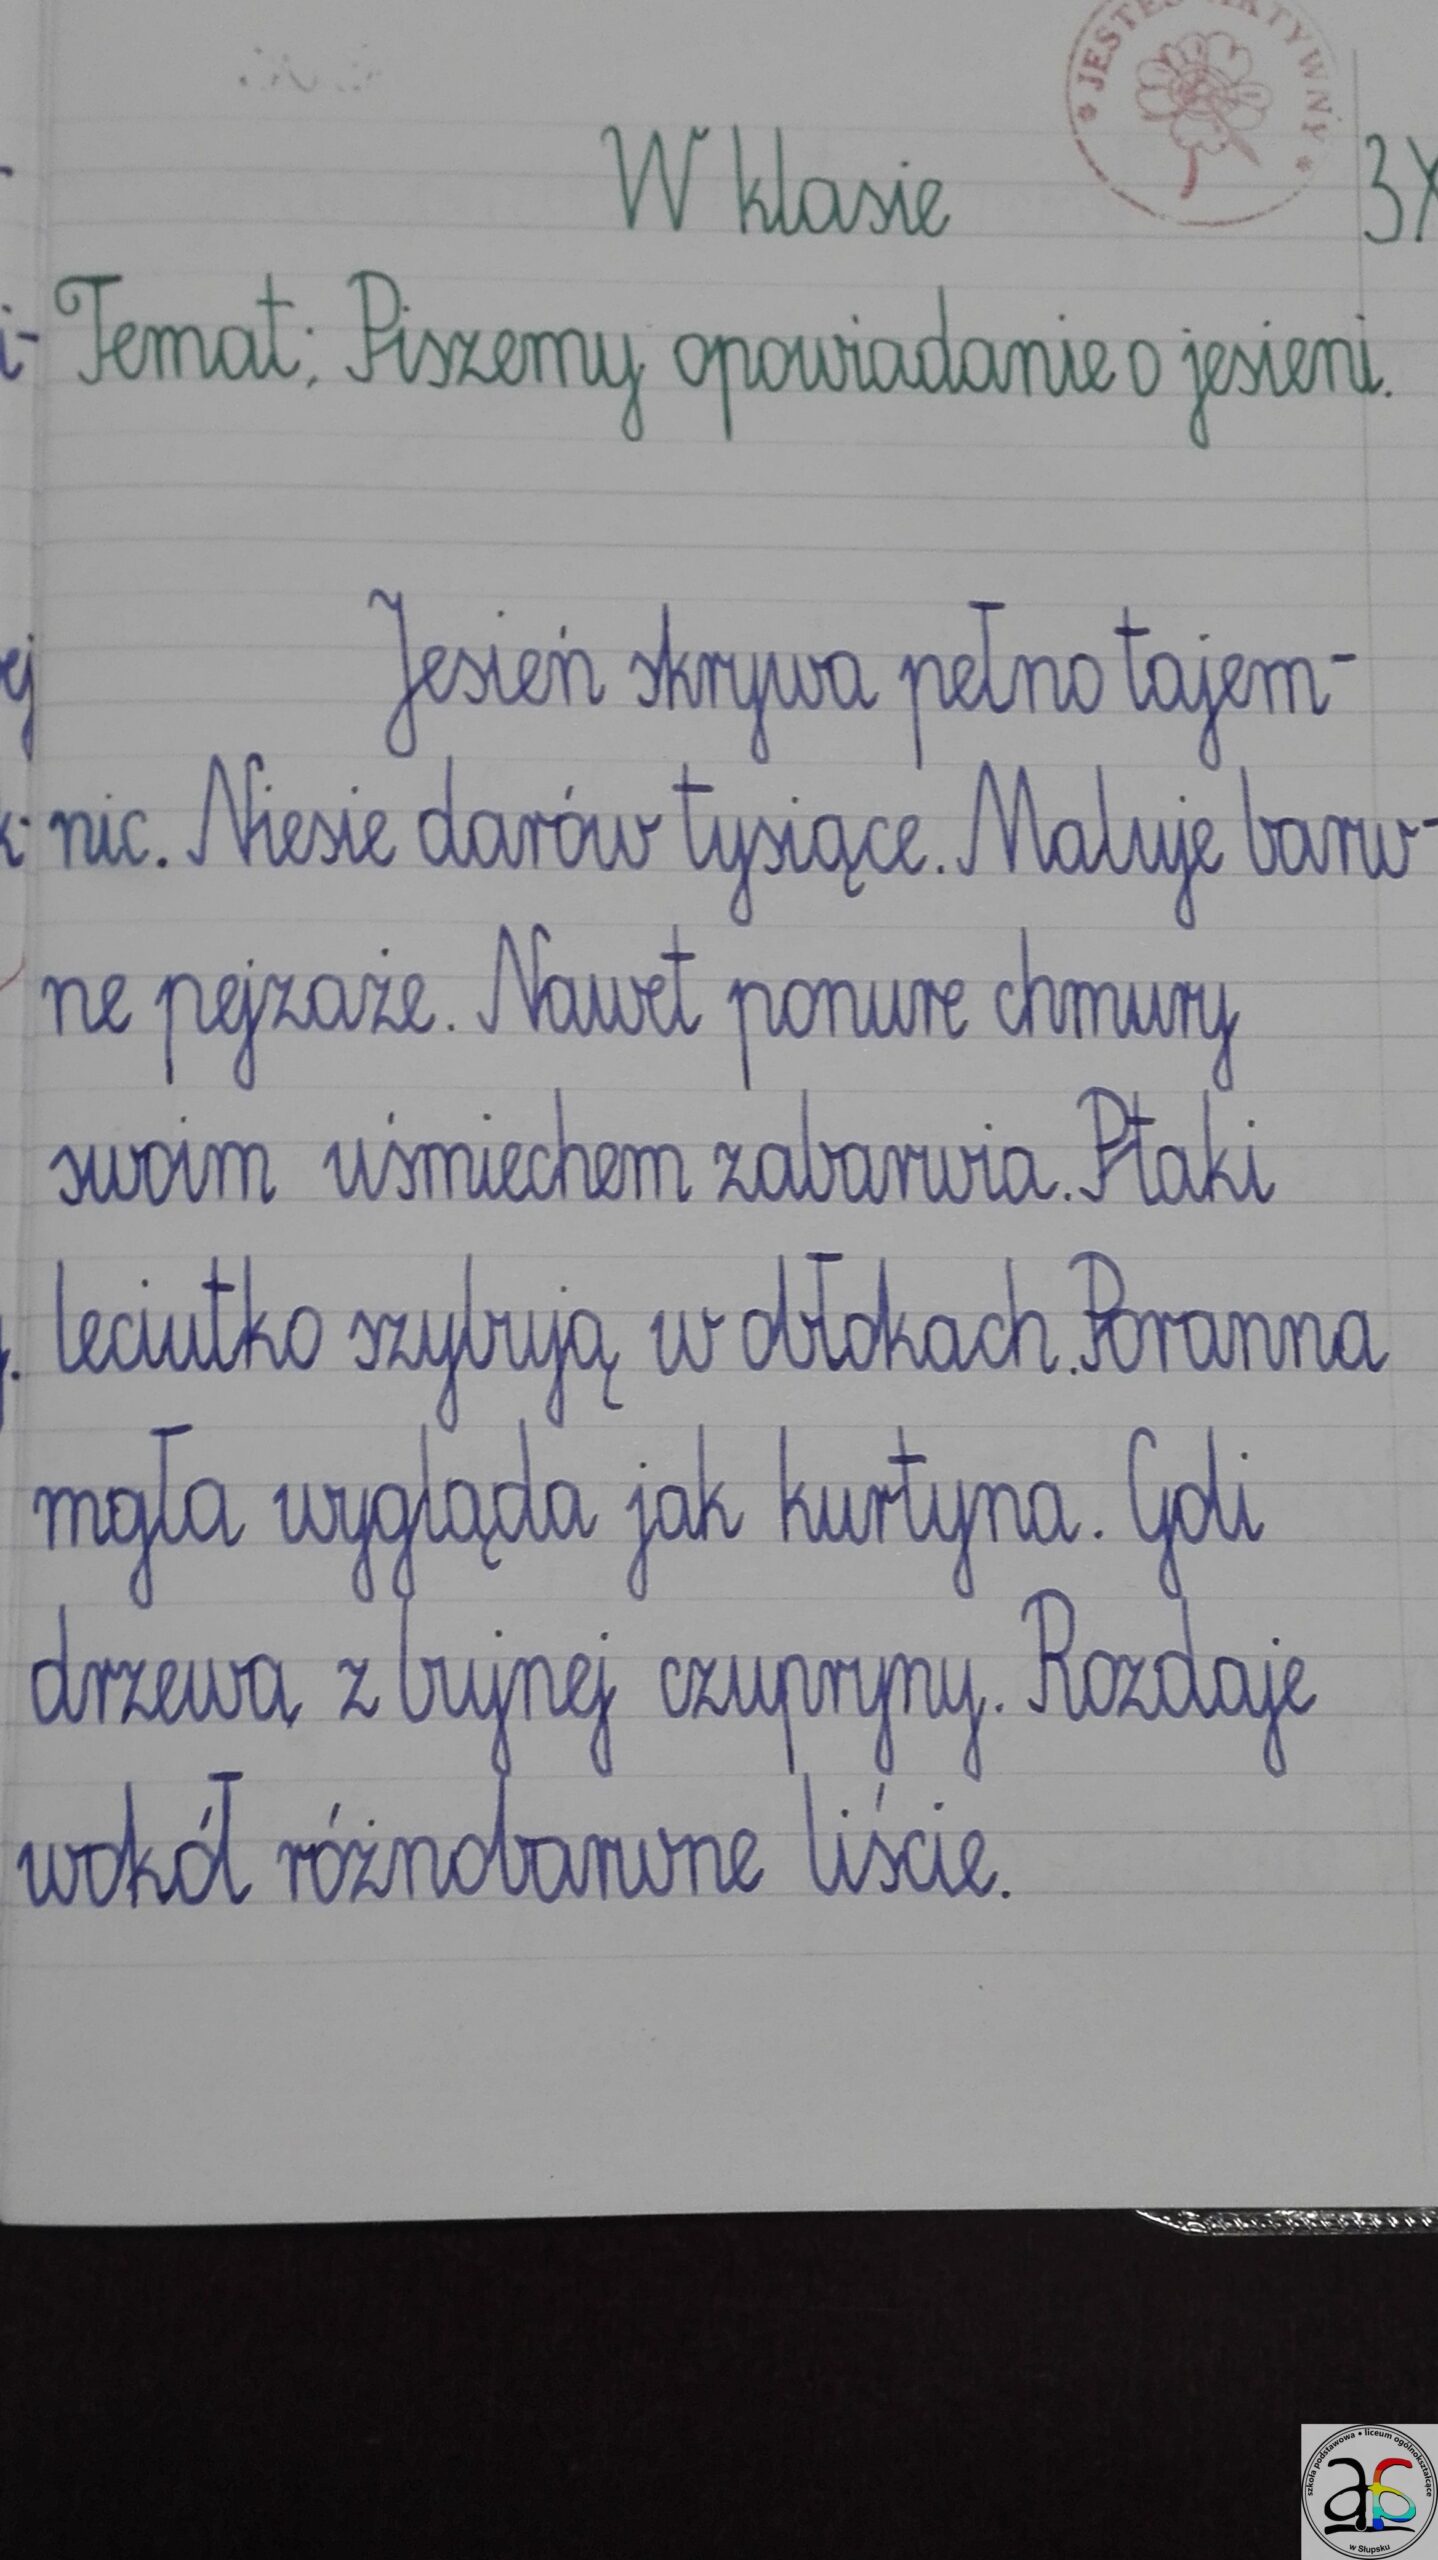 JESTEŚ AKTYWNY
W klasie 3X
Temat: Piszemy opowiadanie o jesieni.
Jesień skrywa pełno tajem-
nic. Niesie darów tysiące. Maluje barw-
ne pejzaże. Nawet ponure chmury
swoim uśmiechem zabarwia. Ptaki
leciutko szybują w obłokach. Poranna
mgła wygląda jak kurtyna. Goli
drzewa z bujnej czupryny. Rozdaje
wokół różnobarwne liście.
szkoła podstawowa • liceum ogólnokształcące
w Słupsku